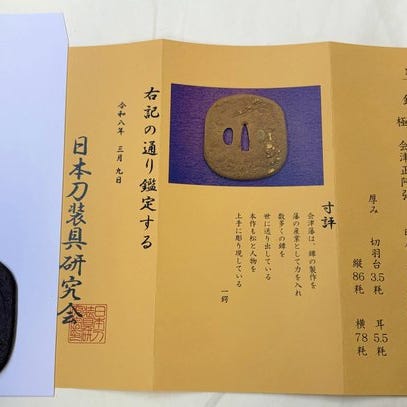 極 会津正阿弥
厚み 切羽台 3.5粍 耳 5.5粍
縦 86粍 横 78粍
寸評
会津藩は、鐔の製作を
藩の産業として力を入れ
数多くの鐔を
世に送り出している
本作も松と人物を
上手に彫り現している
右記の通り鑑定する
令和八年 三月九日
日本刀装具研究会